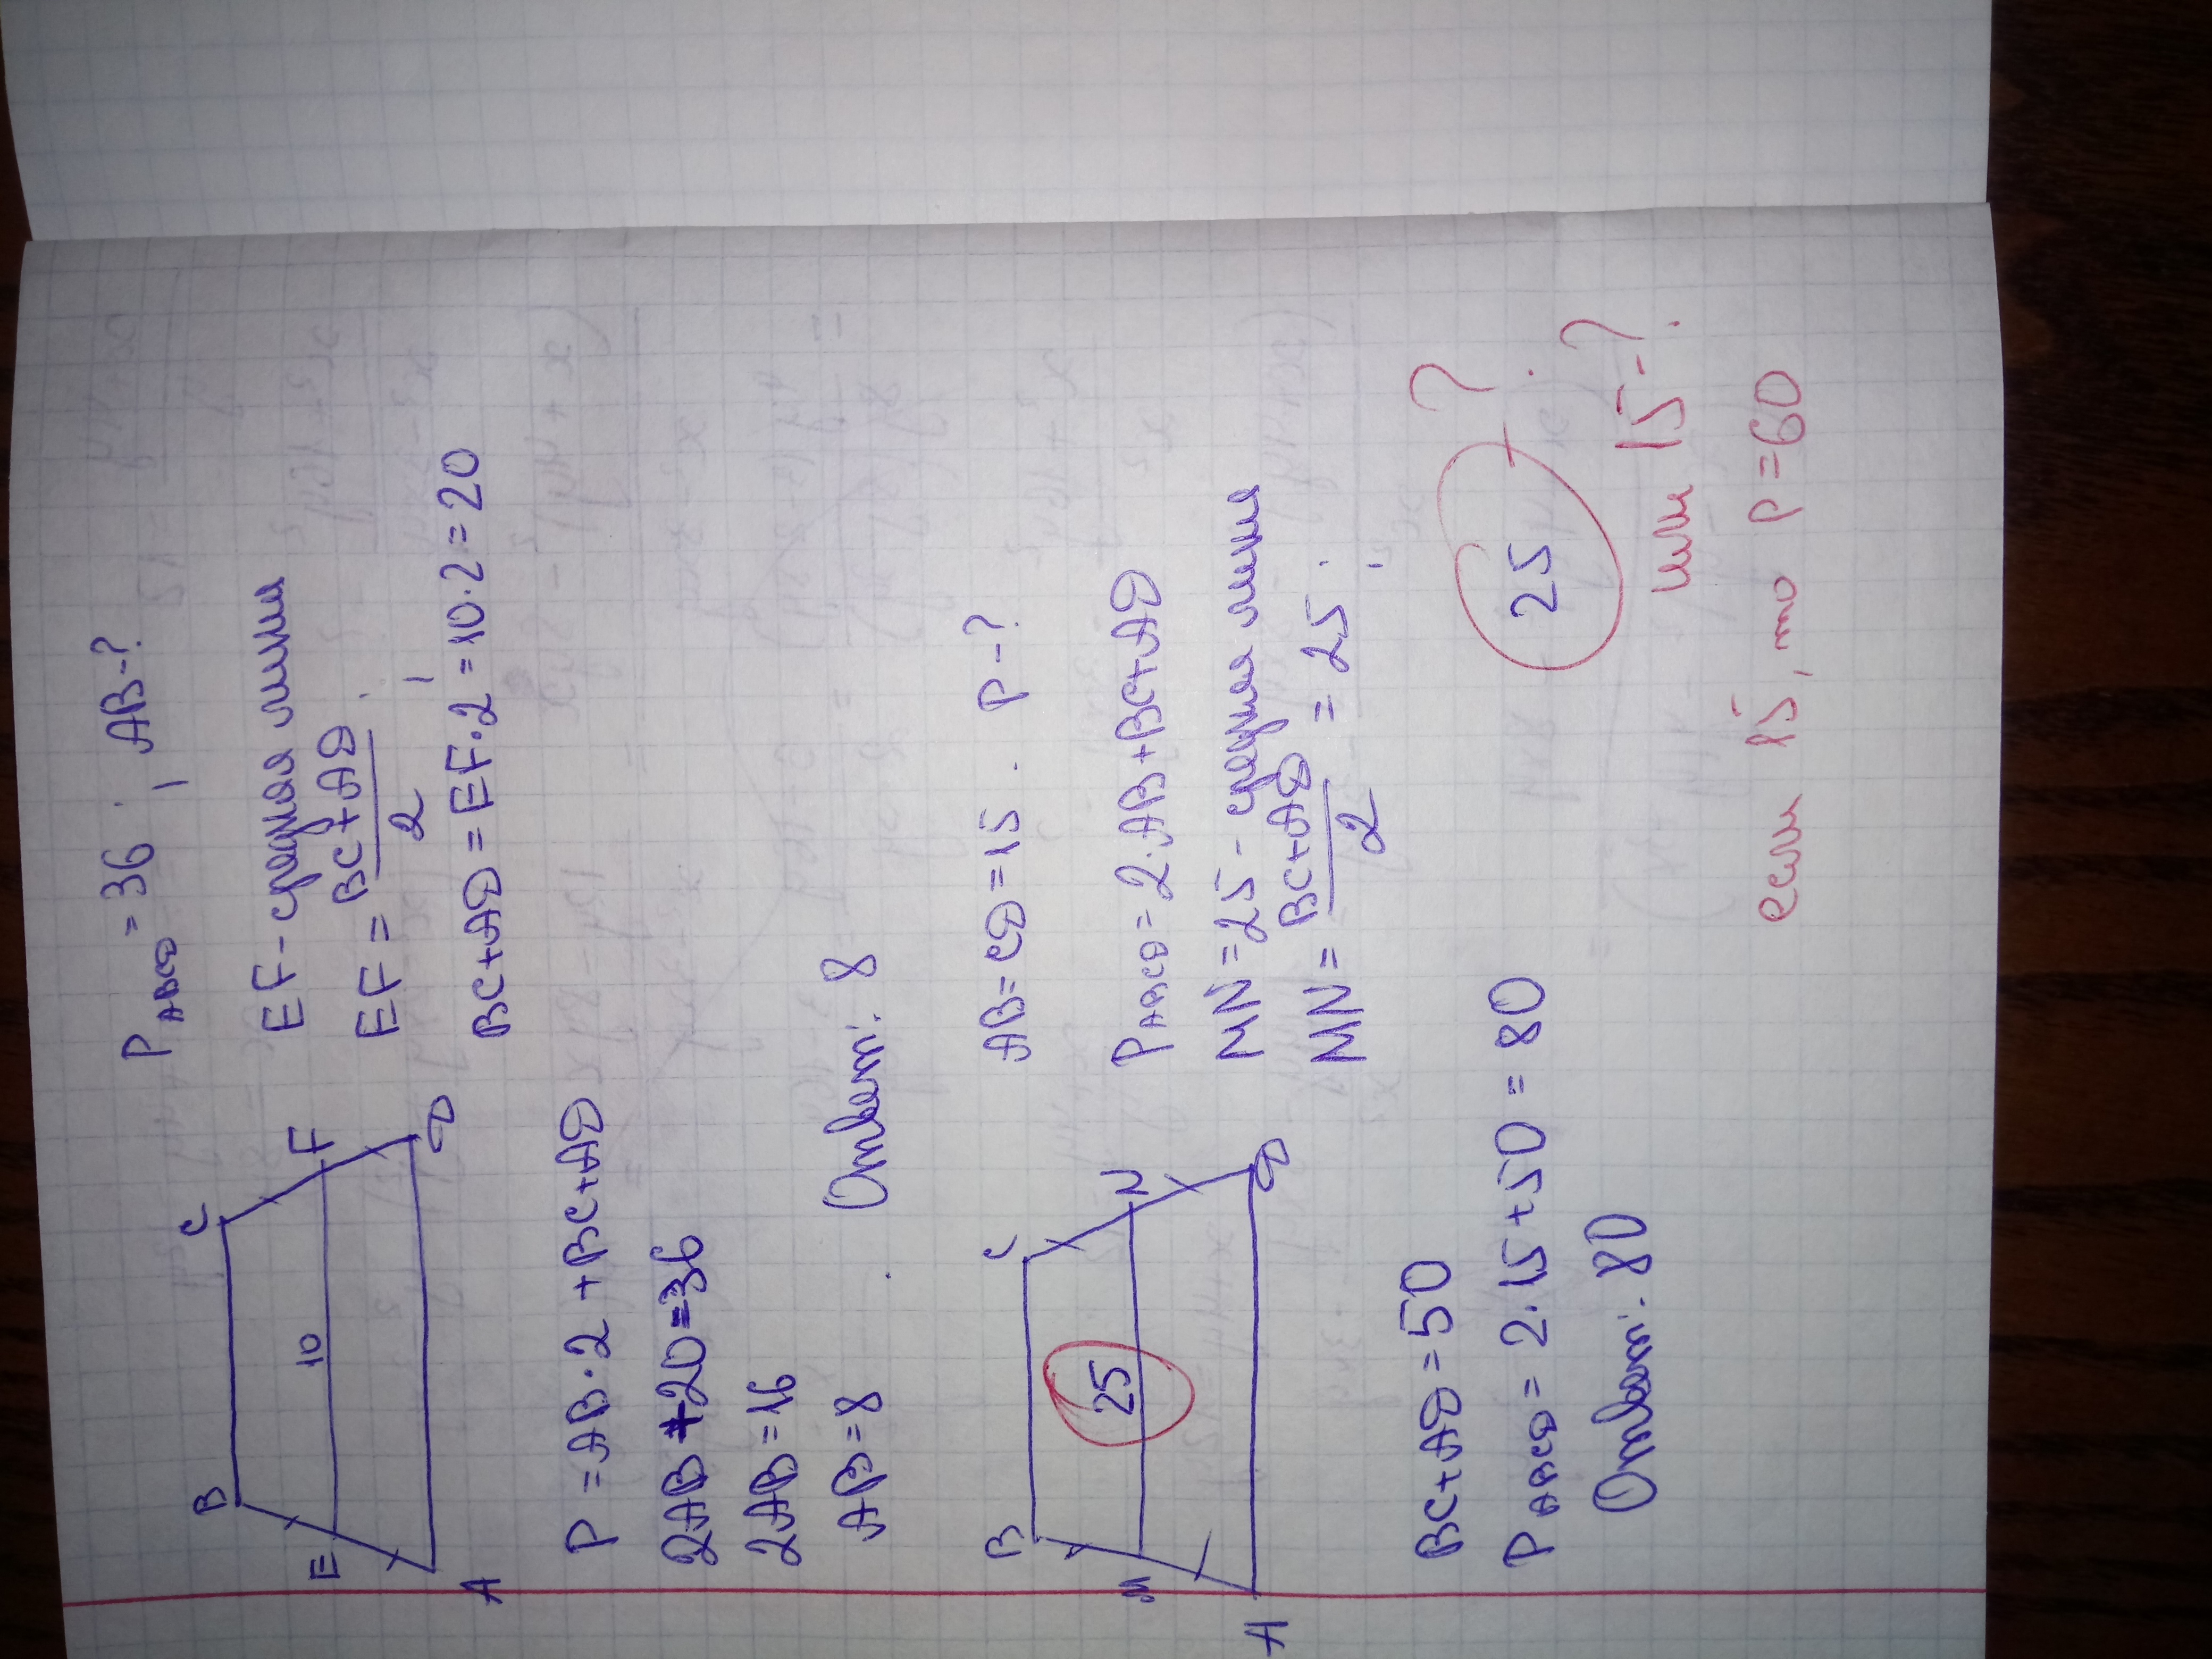 P ABCD = 36 ; AB-?
B
C
E
10
F
A
D
EF - средняя линия
EF = BC+AD / 2 ;
BC+AD = EF·2 = 10·2 = 20
P = AB·2 + BC+AD
2AB+20=36
2AB=16
AB=8
Ответ: 8
AB = CD = 15 . P-?
B
C
M
25
N
A
D
P ABCD = 2·AB+BC+AD
MN = 25 - средняя линия
MN = BC+AD / 2 = 25 ;
BC+AD = 50
P ABCD = 2·15+50 = 80
Ответ: 80
25 ?
или 15-?
если 15, то P=60